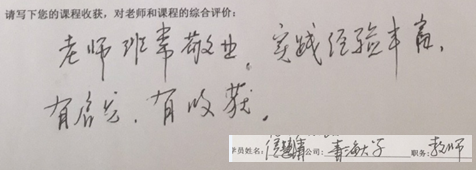 请写下您的课程收获，对老师和课程的综合评价：
老师非常敬业，实践经验丰富，
有启发，有收获。
学员姓名： 公司：青海大学 职务：教师